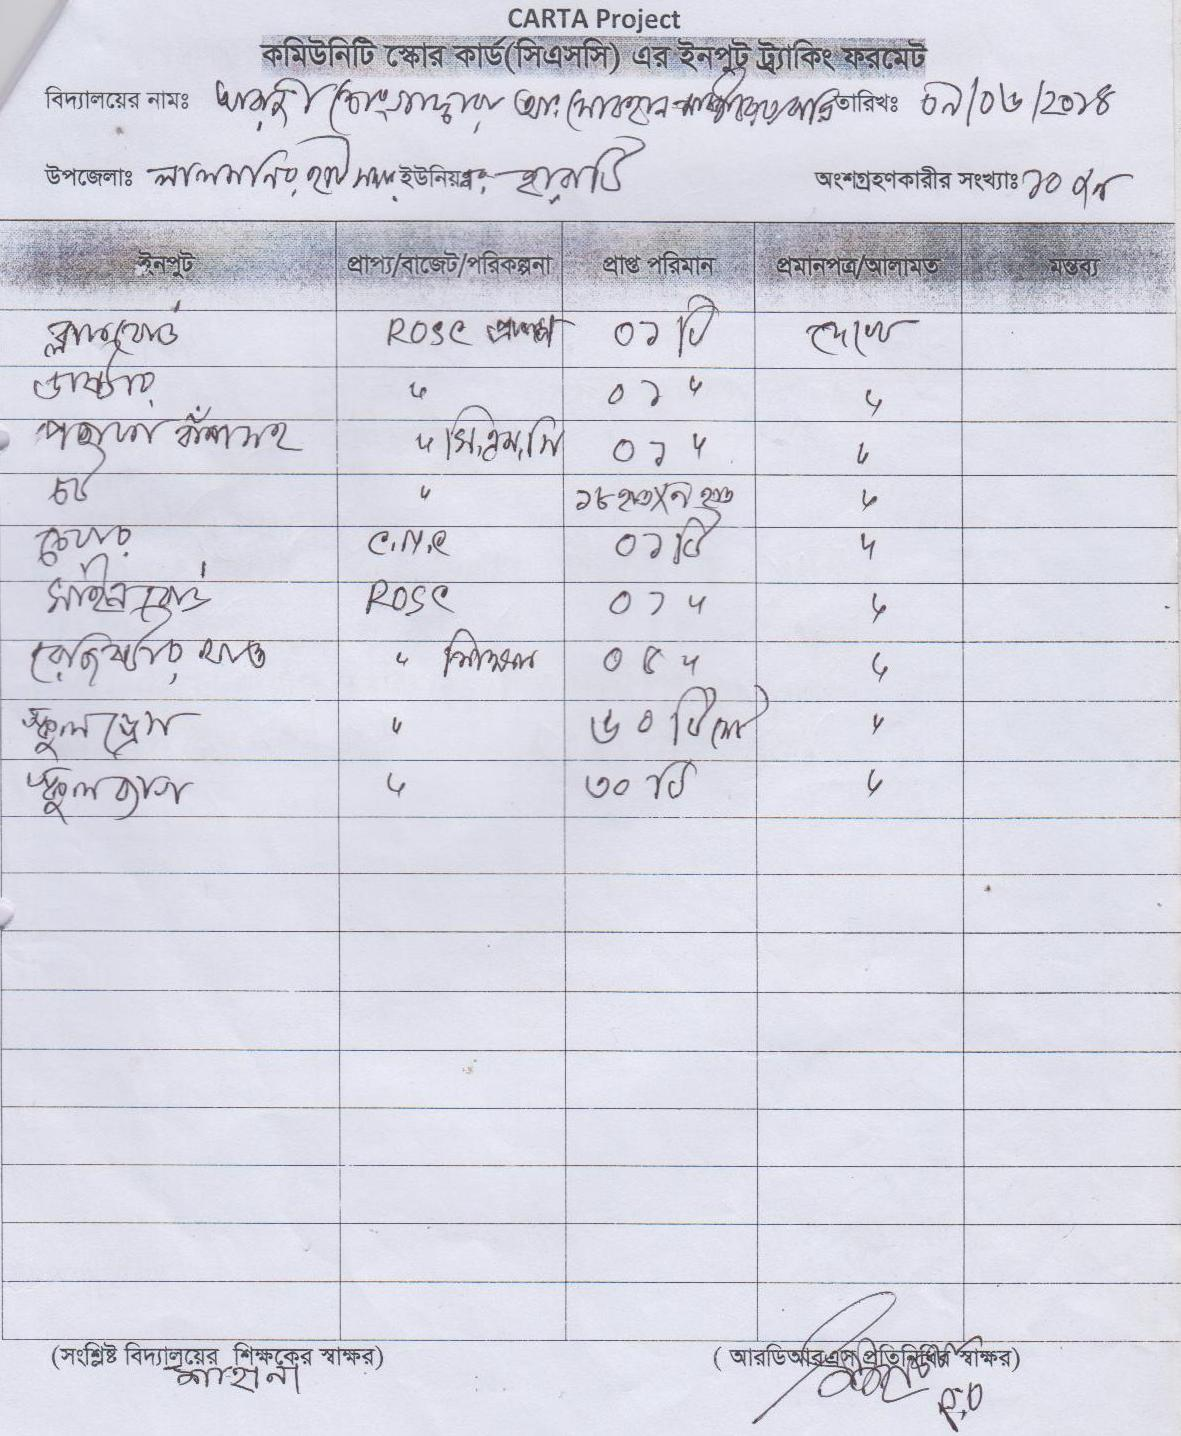 CARTA Project
কমিউনিটি স্কোর কার্ড(সিএসসি) এর ইনপুট ট্র্যাকিং ফরমেট
বিদ্যালয়ের নামঃ তারিখঃ ০৯/০৬/২০১৪
উপজেলাঃ লালমনিরহাট সদর ইউনিয়নঃ হারাটি অংশগ্রহণকারীর সংখ্যাঃ ১০ জন
ইনপুট প্রাপ্য/বাজেট/পরিকল্পনা প্রাপ্ত পরিমান প্রমানপত্র/আলামত মন্তব্য
ব্লাকবোর্ড ROSC প্রকল্প ০১ টি দেখে
ডাষ্টার " ০১ " "
পতাকা বাঁশসহ " সি,এম,সি ০১ " "
চট " ১৮ হাত X ৭ হাত "
চেয়ার C.M.C ০১ টি "
সাইন বোর্ড ROSC ০১ " "
রেজিষ্টার খাতা " শিক্ষক ০৫ " "
স্কুল ড্রেস " ৬০ টি সেট "
স্কুল ব্যাগ " ৩০ টি "
(সংশ্লিষ্ট বিদ্যালয়ের শিক্ষকের স্বাক্ষর) ( আরডিআরএস প্রতিনিধির স্বাক্ষর)
শাহানা